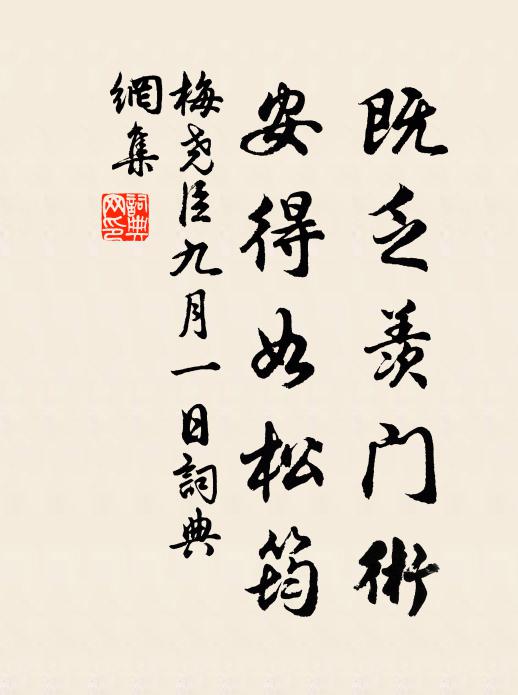 既乏羡门術
安得如松筠
梅尧臣九月一日詞典
網集
詞典
网印